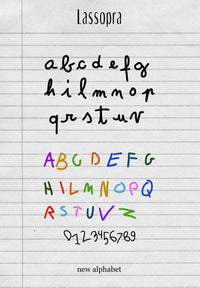 Lassopra
a b c d e f g
h i l m n o p
q r s t u v
A B C D E F G
H I L M N O P Q
R S T U V Z
0123456789
new alphabet